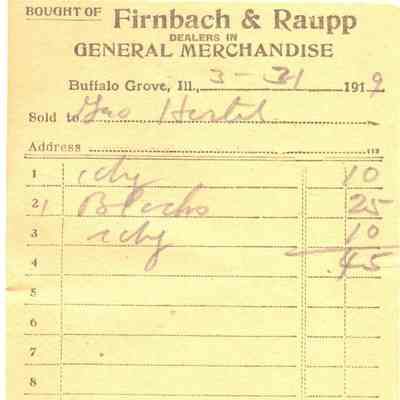 BOUGHT OF Firnbach & Raupp
DEALERS IN
GENERAL MERCHANDISE
Buffalo Grove, Ill., 3-31 1919
Sold to Geo Hertel
Address
1 10
2 1 25
3 10
4 .45
5
6
7
8